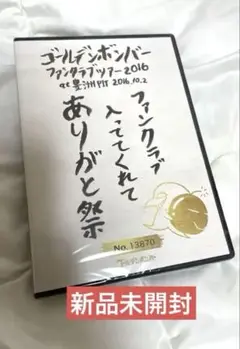 ゴールデンボンバー
ファンクラブツアー2016
at 豊洲PIT 2016.10.2
ファンクラブ
入っててくれて
ありがと祭
No.13870
ゴールデンボンバー
新品未開封